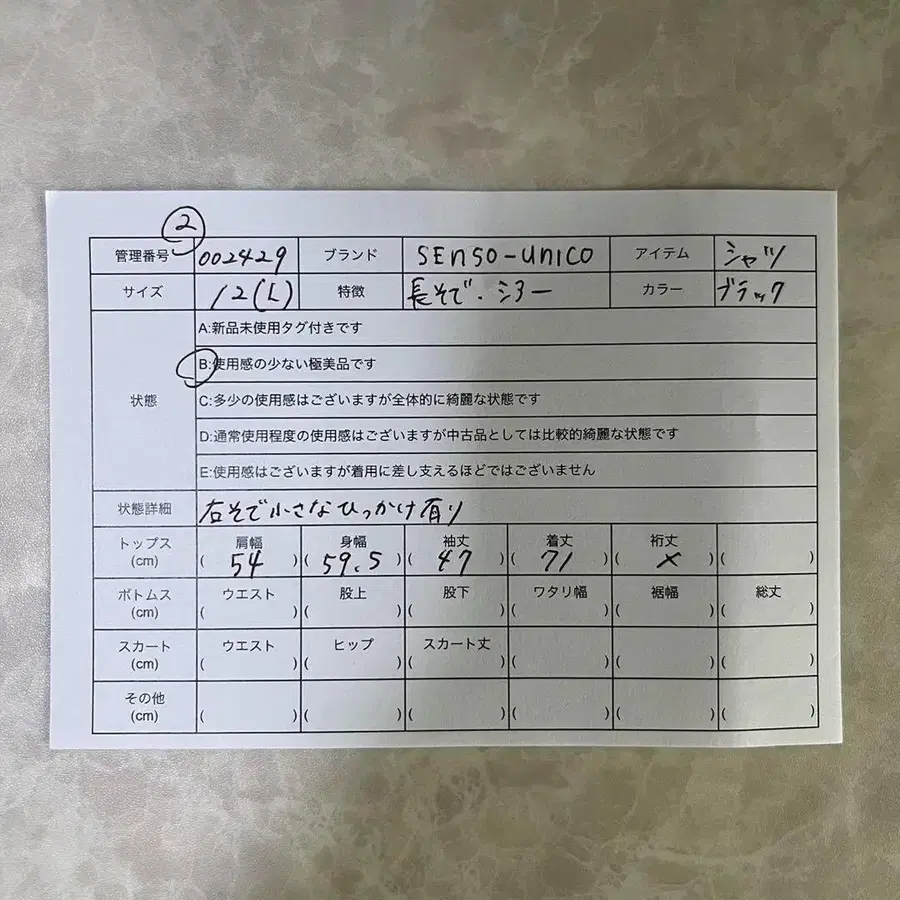 ②
管理番号 002429 ブランド SENSO-UNICO アイテム シャツ
サイズ 12(L) 特徴 長そで・シアー カラー ブラック
状態
A:新品未使用タグ付きです
B:使用感の少ない極美品です
C:多少の使用感はございますが全体的に綺麗な状態です
D:通常使用程度の使用感はございますが中古品としては比較的綺麗な状態です
E:使用感はございますが着用に差し支えるほどではございません
状態詳細 右そで小さなひっかけ有り
トップス 肩幅 身幅 袖丈 着丈 裄丈
(cm) ( 54 ) ( 59.5 ) ( 47 ) ( 71 ) ( × ) ( )
ボトムス ウエスト 股上 股下 ワタリ幅 裾幅 総丈
(cm) ( ) ( ) ( ) ( ) ( ) ( )
スカート ウエスト ヒップ スカート丈
(cm) ( ) ( ) ( ) ( ) ( ) ( )
その他
(cm) ( ) ( ) ( ) ( ) ( ) ( )